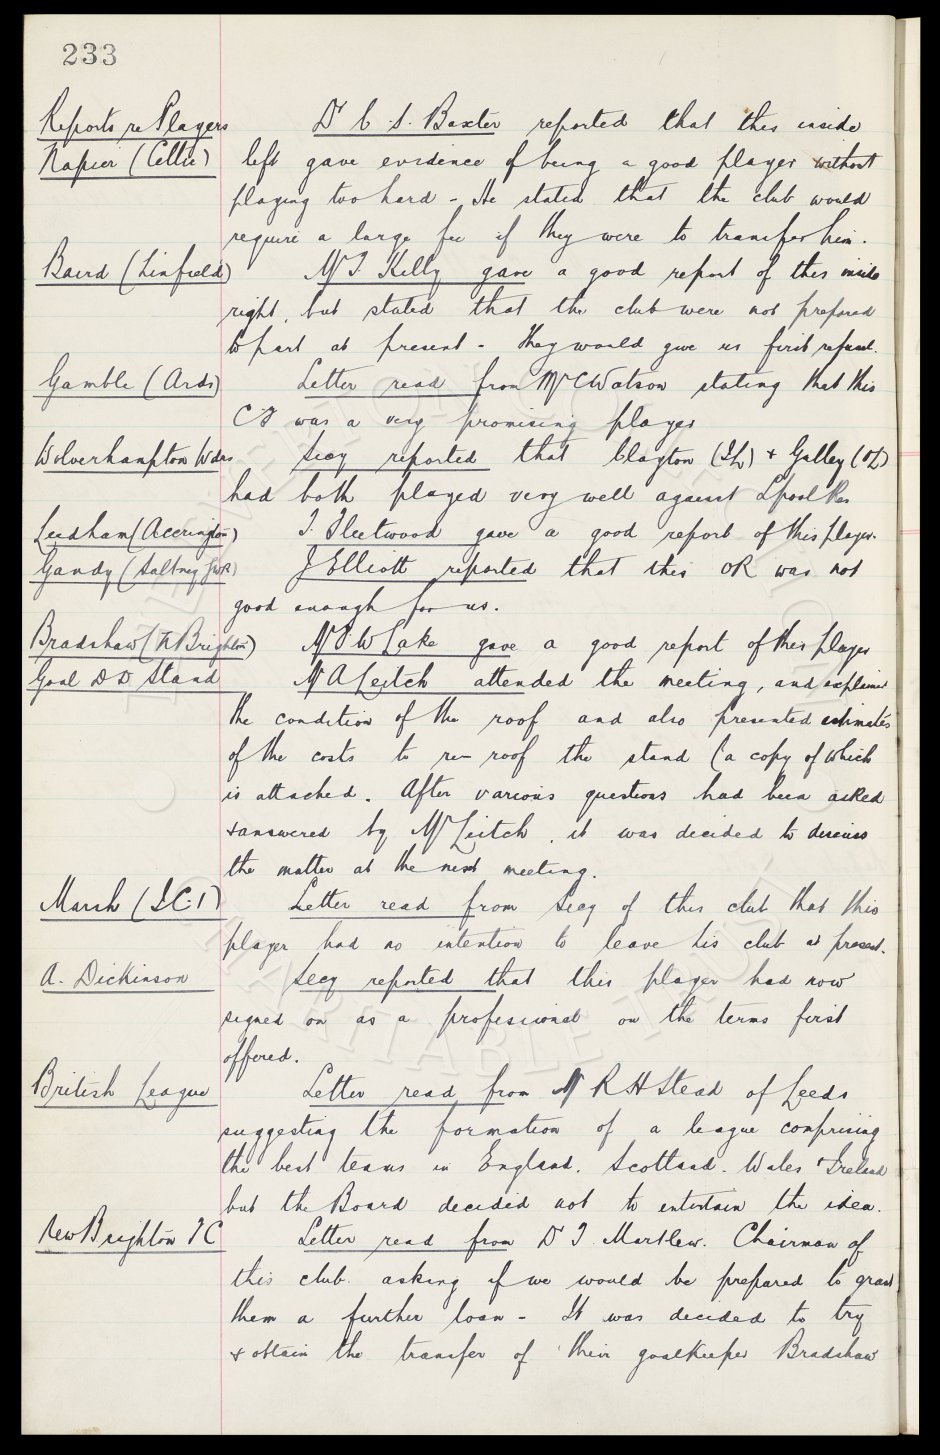 233
Reports re Players Dr C. S. Baxter reported that this inside
Napier (Celtic) left gave evidence of being a good player without
playing too hard - He stated that the club would
require a large fee if they were to transfer him.
Baird (Linfield) Mr T. Kelly gave a good report of this inside
right, but stated that the club were not prepared
to part at present - They would give us first refusal.
Gamble (Ards) Letter read from Mr C Watson stating that this
CF was a very promising player
Wolverhampton Wdrs Secy reported that Clayton (IL) & Galley (OL)
had both played very well against Lpool Res
Leedham (Accrington) T. Fleetwood gave a good report of this player.
Gandy (Saltney JWR) J Elliott reported that this OR was not
good enough for us.
Bradshaw (N Brighton) Mr P W Lake gave a good report of this player
Goal D D Stand Mr A Leitch attended the meeting, and explained
the condition of the roof and also presented estimates
of the costs to re-roof the stand (a copy of which
is attached. After various questions had been asked
& answered by Mr Leitch, it was decided to discuss
the matter at the next meeting.
Marsh (I.C.I) Letter read from Secy of this club that this
player had no intention to leave his club at present.
A. Dickinson Secy reported that this player had now
signed on as a professional on the terms first
offered.
British League Letter read from Mr R H Stead of Leeds
suggesting the formation of a league comprising
the best teams in England. Scotland. Wales & Ireland
but the Board decided not to entertain the idea.
New Brighton FC Letter read from Dr T. Martlew. Chairman of
this club asking if we would be prepared to grant
them a further loan - It was decided to try
& obtain the transfer of their goalkeeper Bradshaw